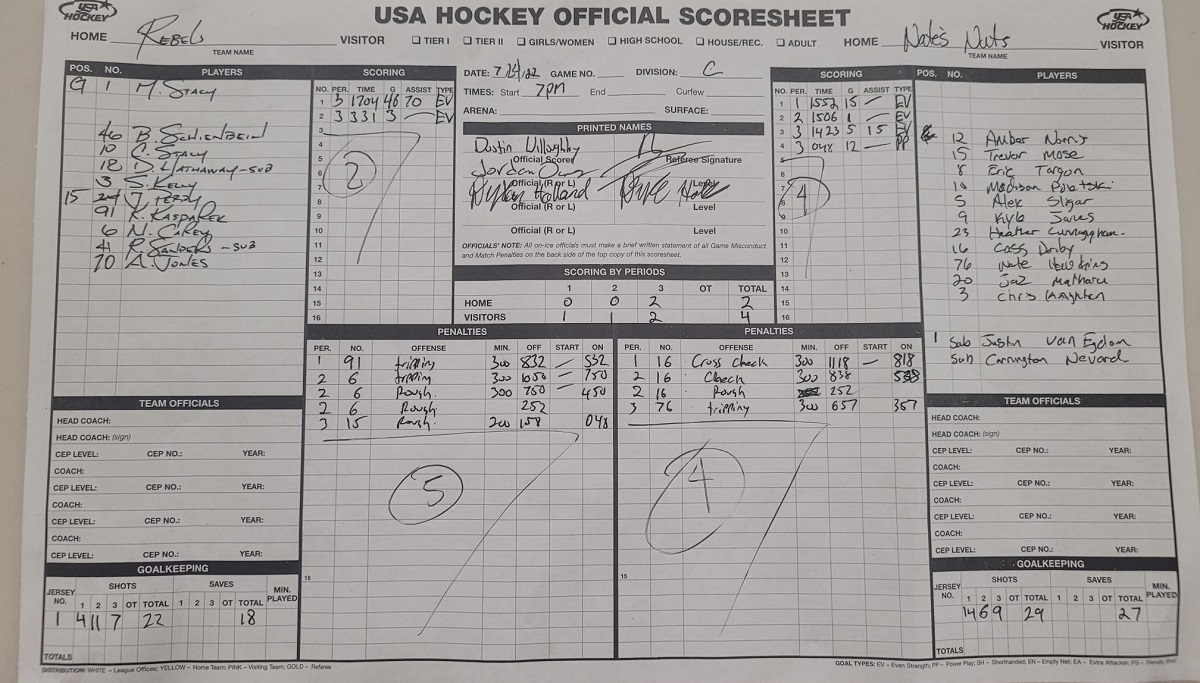 USA HOCKEY
USA HOCKEY OFFICIAL SCORESHEET
USA HOCKEY
HOME Rebels VISITOR
TEAM NAME
☐ TIER I ☐ TIER II ☐ GIRLS/WOMEN ☐ HIGH SCHOOL ☐ HOUSE/REC. ☐ ADULT
HOME Nate's Nuts VISITOR
TEAM NAME
POS. NO. PLAYERS
G 1 M. Stacy
46 B. Schienbein
10 C. Stacy
18 D. Hathaway-SUB
3 S. Kelly
15
91 K. Kasparek
6 N. Carey
41 R. Sanders -SUB
70 A. Jones
SCORING
NO. PER. TIME G ASSIST TYPE
1 3 1704 46 70 EV
2 3 331 3 — EV
3
4
5
6
7
8
9
10
11
12
13
14
15
16
2
DATE: 7/14/22 GAME NO. DIVISION: C
TIMES: Start 7pm End Curfew
ARENA: SURFACE:
PRINTED NAMES
Dustin Willoughby
Official Scorer Referee Signature
Official (R or L) Level
Official (R or L) Level
Official (R or L) Level
OFFICIALS' NOTE: All on-ice officials must make a brief written statement of all Game Misconduct
and Match Penalties on the back side of the top copy of this scoresheet.
SCORING BY PERIODS
1 2 3 OT TOTAL
HOME 0 0 2 2
VISITORS 1 1 2 4
SCORING
NO. PER. TIME G ASSIST TYPE
1 1 1552 15 — EV
2 2 1506 1 — EV
3 3 1423 5 15 EV
4 3 048 12 — PP
5
6
7
8
9
10
11
12
13
14
15
16
4
POS. NO. PLAYERS
12 Amber Norris
15 Trevor Mose
8 Eric Targon
10 Madison
5 Alex Sligar
9 Kyle James
23 Heather Cunningham.
16 Cass Derby
76 Nate Hawkins
20 Jaz Matharu
3 Chris
1 Sub Justin Van Egdom
Sub Carrington Nevard
PENALTIES
PER. NO. OFFENSE MIN. OFF START ON
1 91 tripping 300 832 — 532
2 6 tripping 300 1050 — 750
2 6 Rough 300 750 — 450
2 6 Rough 252
3 15 Rough. 200 158 048
15
5
PENALTIES
PER. NO. OFFENSE MIN. OFF START ON
1 16 Cross check 300 1118 — 818
2 16 Check 300 838
2 16 Rough 252
3 76 tripping 300 657 357
15
4
TEAM OFFICIALS
HEAD COACH:
HEAD COACH: (sign)
CEP LEVEL: CEP NO.: YEAR:
COACH:
CEP LEVEL: CEP NO.: YEAR:
COACH:
CEP LEVEL: CEP NO.: YEAR:
COACH:
CEP LEVEL: CEP NO.: YEAR:
GOALKEEPING
JERSEY NO. SHOTS SAVES MIN. PLAYED
1 2 3 OT TOTAL 1 2 3 OT TOTAL
1 4 11 7 22 18
TOTALS
TEAM OFFICIALS
HEAD COACH:
HEAD COACH: (sign)
CEP LEVEL: CEP NO.: YEAR:
COACH:
CEP LEVEL: CEP NO.: YEAR:
COACH:
CEP LEVEL: CEP NO.: YEAR:
COACH:
CEP LEVEL: CEP NO.: YEAR:
GOALKEEPING
JERSEY NO. SHOTS SAVES MIN. PLAYED
1 2 3 OT TOTAL 1 2 3 OT TOTAL
14 6 9 29 27
TOTALS
DISTRIBUTION: WHITE – League Offices; YELLOW – Home Team; PINK – Visiting Team; GOLD – Referee
GOAL TYPES: EV – Even Strength; PP – Power Play; SH – Shorthanded; EN – Empty Net; EA – Extra Attacker; PS – Penalty Shot